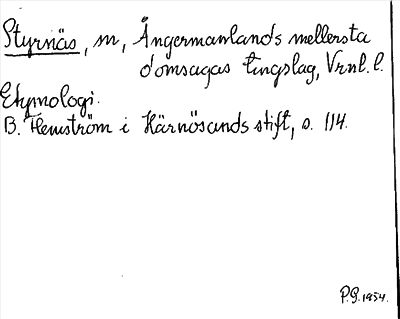 Styrnäs, sn, Ångermanlands mellersta
domsagas tingslag, Vrnl. l.
Etymologi.
B. Flemström i Härnösands stift, s. 114.
P.G. 1954.